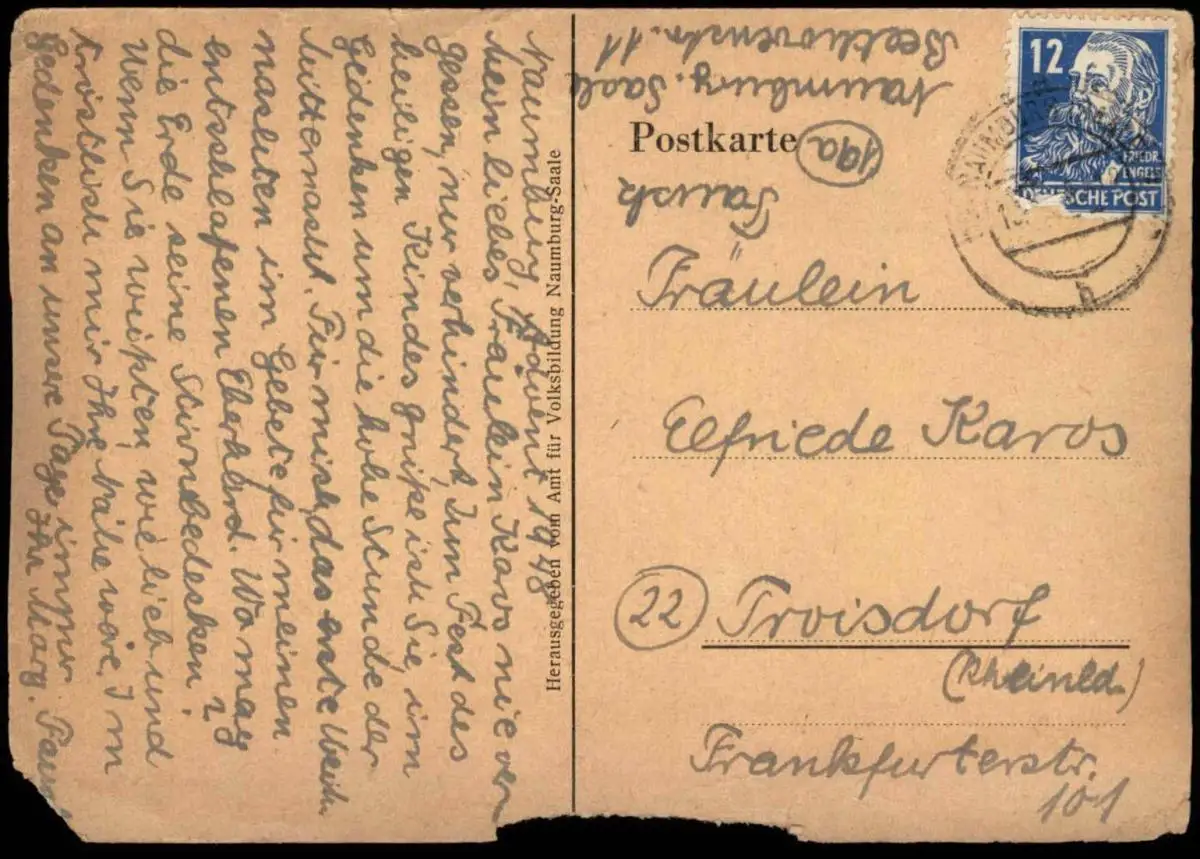 Naumburg, Advent 1948
Mein liebes Fräulein Karos nie ver
gessen, nur verhindert. Zum Fest des
heiligen Kindes grüße ich Sie, im
Gedenken um die hohe Stunde der
Mitternacht. Für mich das erste Weih
nachten im Gebete für meinen
entschlafenen Eberhard. Wo mag
die Erde seine Stirn bedecken?
Wenn Sie wüßten, wie lieb und
tröstlich mir Ihre Nähe wäre. Im
Gedenken an unsere Tage immer
Ihre Marg.
Herausgegeben vom Amt für Volksbildung Naumburg-Saale
Pausch
19a
Naumburg, Saale
Beethovenstr. 11
Postkarte
12
FRIEDR.
ENGELS
DEUTSCHE POST
NAUMBURG
b
Fräulein
Elfriede Karos
22 Troisdorf
(Rheinld.)
Frankfurterstr.
101